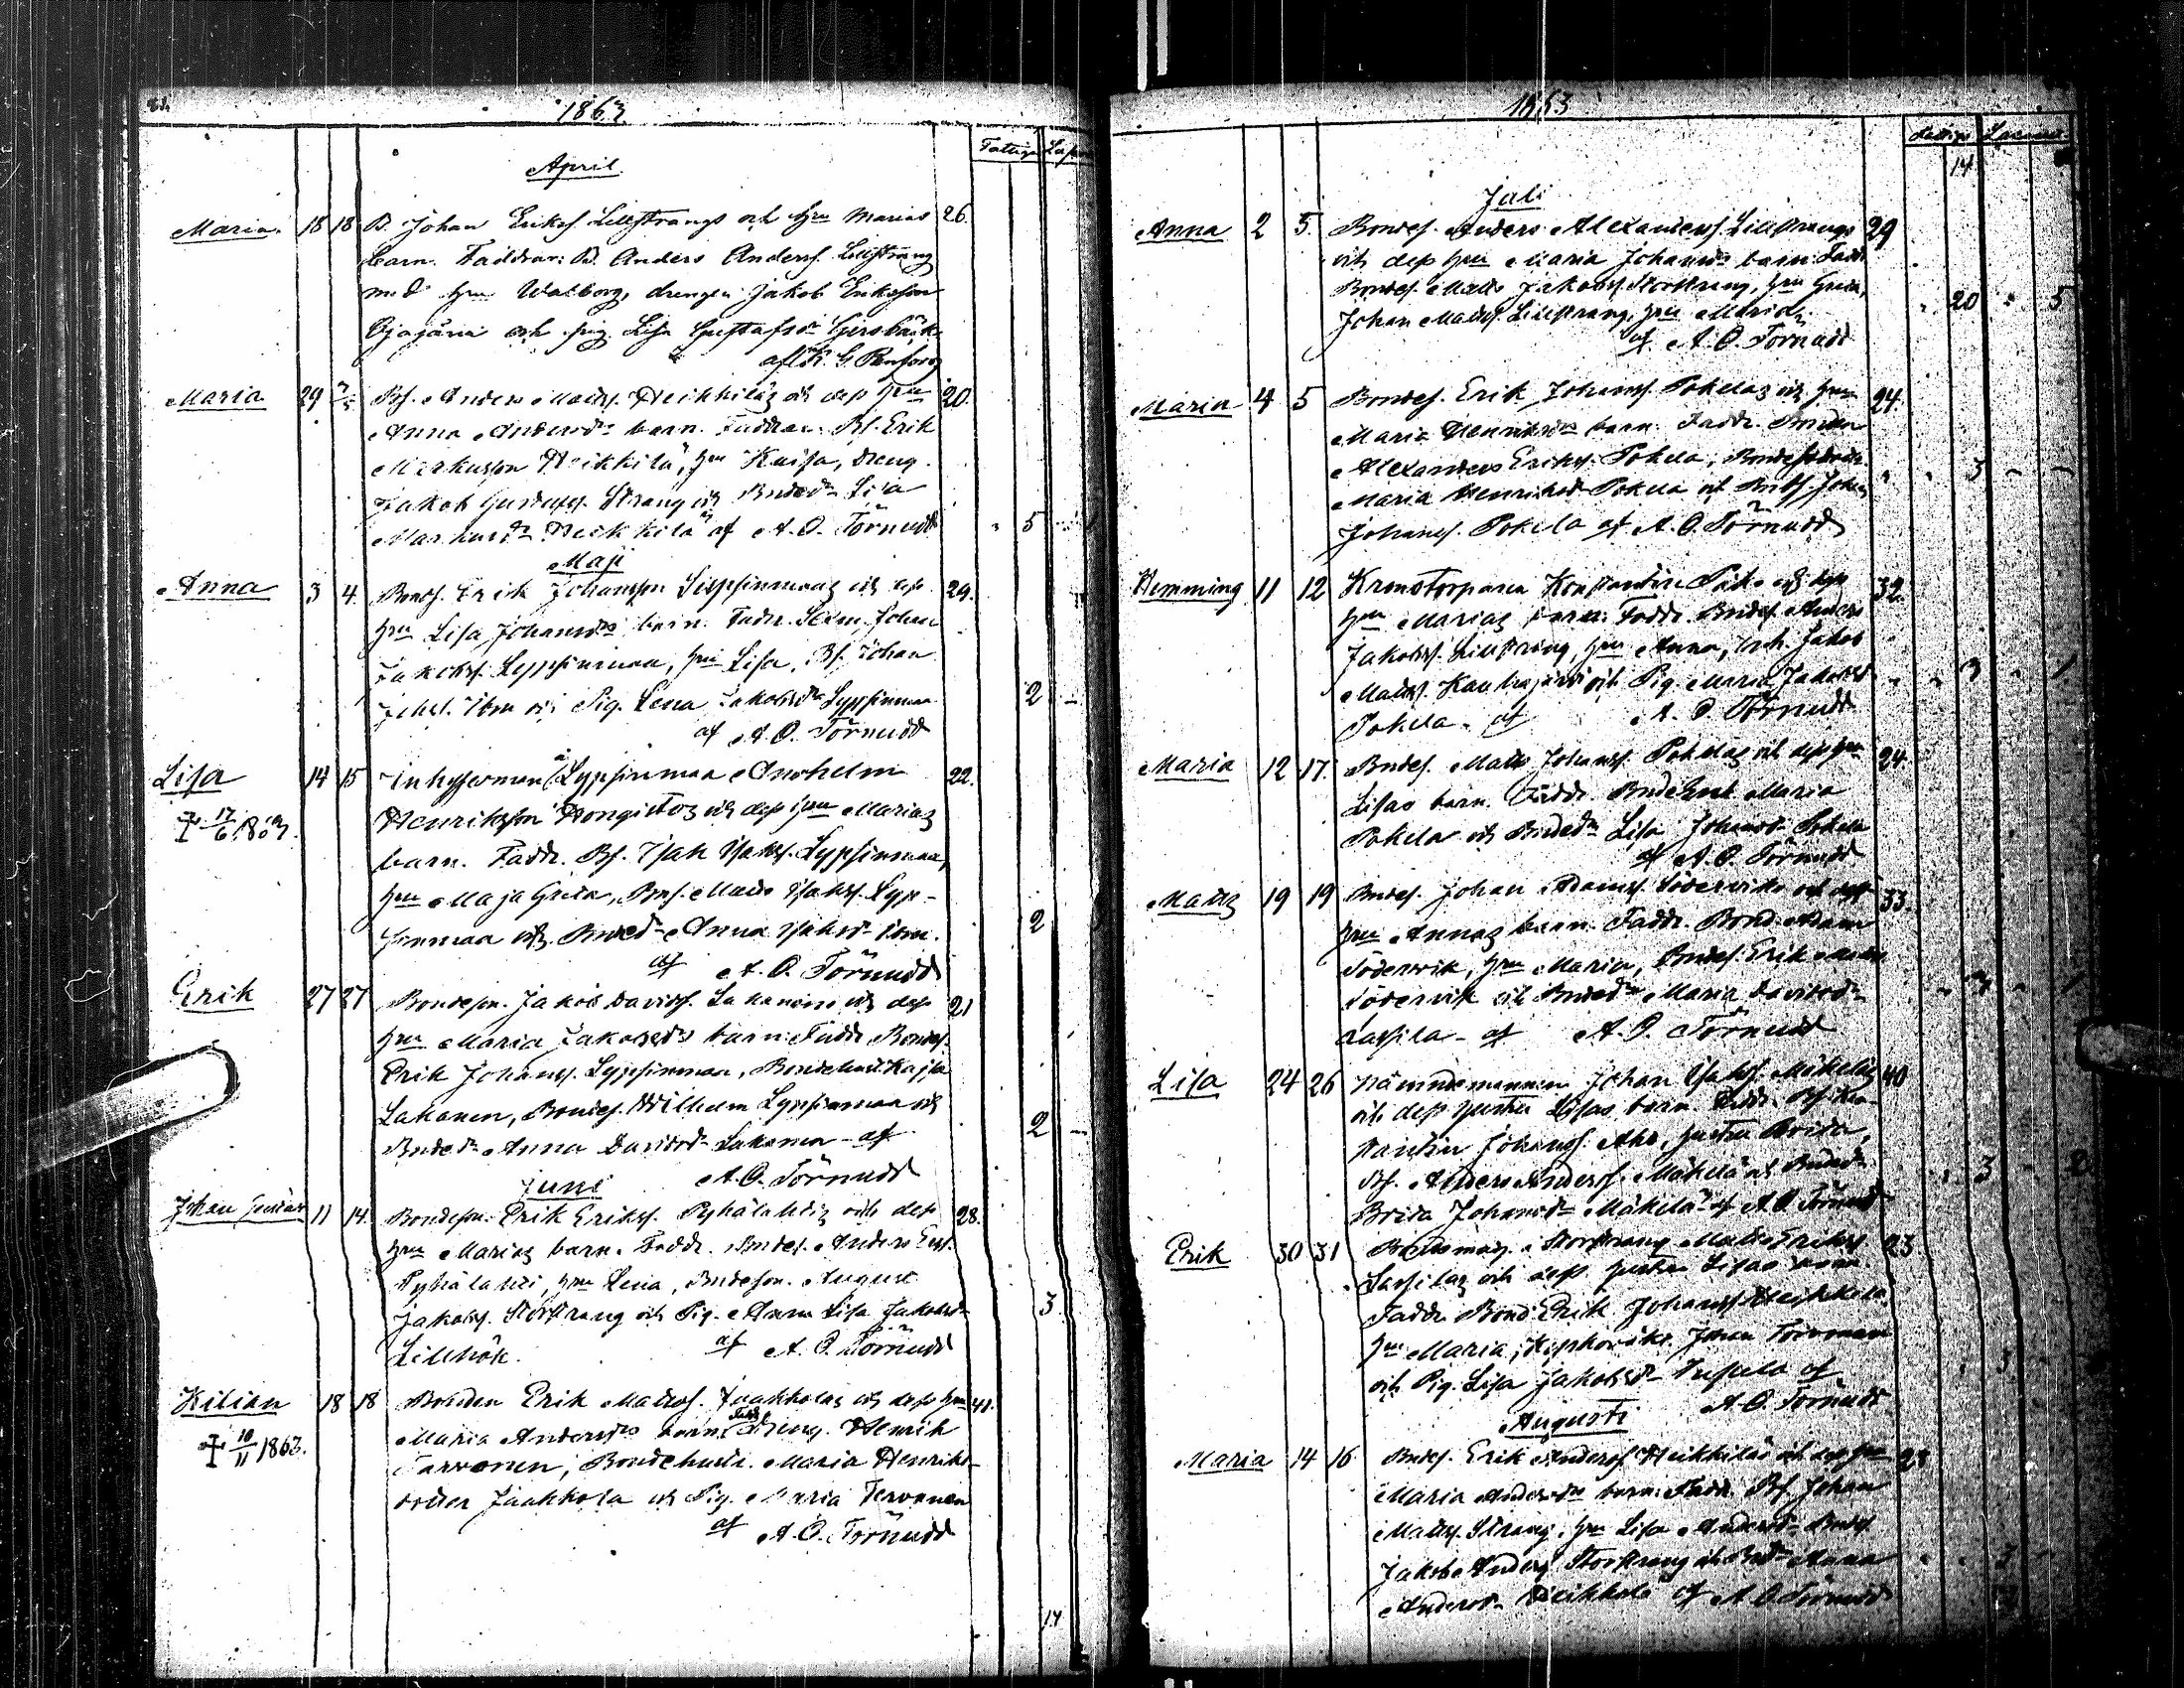 1863
Fattiga
April
Maria. 18 18 B. Johan Erikss. Lillstrangs och hru Marias 26.
barn. Faddrar: B. Anders Anderss. Lillstrang
med hru Walborg, drengen Jakob Eriksson
och pig. Lisa Gustafsdr
af K. G.
Maria 29 Bs. Anders Matss. Heikkiläs och dess hru 20.
Anna Andersdrs barn. Faddrar: Bs. Erik
Markusson Heikkilä, hru Kaisa, dreng
Jakob Gustafss. Strang och Bndedr Lisa
Markusdr Heikkilä af A. O. Törnudd 5
Maji
Anna 3 4. Bondes. Erik Johansson Lyppsinmaas och dess 29.
hru Lisa Johansdrs barn. Faddr. Johan
Jakobss. Lyppsinmaa, hru Lisa, Bs. Johan
Ibm och Pig. Lena Jakobsdr Lyppsinmaa 2
af A. O. Törnudd
Lisa 14 15 Inhysesman å Lyppsinmaa 22.
† 17/6 1863. Henriksson Hongistos och dess hru Marias
barn. Faddr. Bs. Isak Isakss. Lyppsinmaa,
hru Maja Greta, Bns. Matts Isakss. Lypp-
sinmaa och Bondedr Anna Isaksdr ibm. 2
af A. O. Törnudd
Erik 27 27 Bondeson. Jakob Davidss. Lakanens och dess 21
hru Maria Jakobsdrs barn. Faddr. Bondes.
Erik Johanss. Lyppsinmaa, Bondehust. Kajsa
Lakanen, Bondes. Wilhelm Lyppsinmaa och
Bndedr Anna Davidsdr Lakanen - af 2
A. O. Törnudd
Juni
Johan Gustav 11 14. Bondeson. Erik Erikss. Pyhälahtis och dess 28.
hru Marias barn. Faddr. Bndes. Anders Erss.
Pyhälahti, hru Lena, Bndeson. August
Jakobss. Storstrang och Pig. Anna Lisa Jakobsdr 3
Lillhök. af A. O. Törnudd
Kilian 18 18 Bonden Erik Matss. Jaakkolas och dess hru 41.
† 10/11 1863. Maria Andersdrs barn. Faddr. Dreng. Henrik
Tarvonen, Bondehust. Maria Henriks-
dotter Jaakkola och Pig. Maria Tervonen
af A. O. Törnudd
14
1863
Fattiga
14
Juli
Anna 2 5. Bondes. Anders Alexanderss. Lillstrangs 29
och dess hru Maria Johansdrs barn. Faddr.
Bondes. Matts Jakobss. Storstrang, hru Greta, 20 5
Johan Matss. Lillstrang, hru Maria.
af A. O. Törnudd
Maria 4 5 Bondes. Erik Johanss. Pokelas och hru 24.
Maria Henriksdrs barn. Faddr. Bonden
Alexanders Erikss. Pokela, 3
Maria Henriksdr Pokela och Johan
Johanss. Pokela af A. O. Törnudd
Hemming 11 12 Kronotorparen Konstantin och dess 32.
hru Marias barn. Faddr. Bndes. Anders
Jakobss. Lillstrang, hru Anna, och Jakob
Matss. och Pig. Maria Jakobsdr 3 1
Pokela - af A. O. Törnudd
Maria 12 17. Bndes. Matts Johanss. Pokelas och dess hru 24.
Lisas barn. Faddr. Maria
Pokela och Bndedr Lisa Johansdr Pokela
af A. O. Törnudd
Matts 19 19 Bndes. Johan Adamss. Söderviks och dess 33.
hru Annas barn. Faddr. Bond. Adam
Södervik, hru Maria, Bndes. Erik
Södervik och Bndedr Maria Davidsdr 3
Lassila - af A. O. Törnudd
Lisa 24 26 Nämndemannen Johan Isakss. Mäkeläs 40
och dess hustru Lisas barn. Faddr. Bs. Kon-
stantin Johanss. Aho, hustru Brita,
Bs. Anders Anderss. Mäkelä och Bndedr 3
Brita Johansdr Mäkelä af A. O. Törnudd
Erik 30 31 Storstrang Matts Erikss. 23
Lassilas och dess hustru Lisas barn.
Faddr. Bond. Erik Johanss. Heikkilä,
hru Maria, Johan Toivonen 3
och Pig. Lisa Jakobsdr af
A. O. Törnudd
Augusti
Maria 14 16 Bndes. Erik Anderss. Heikkiläs och dess hru 28
Maria Andersdrs barn. Faddr. Bs. Johan
Matss. Strang, hru Lisa Andersdr, Bndes.
Jakob Anderss. Storstrang och Bndedr Anna 3
Andersdr Heikkilä af A. O. Törnudd